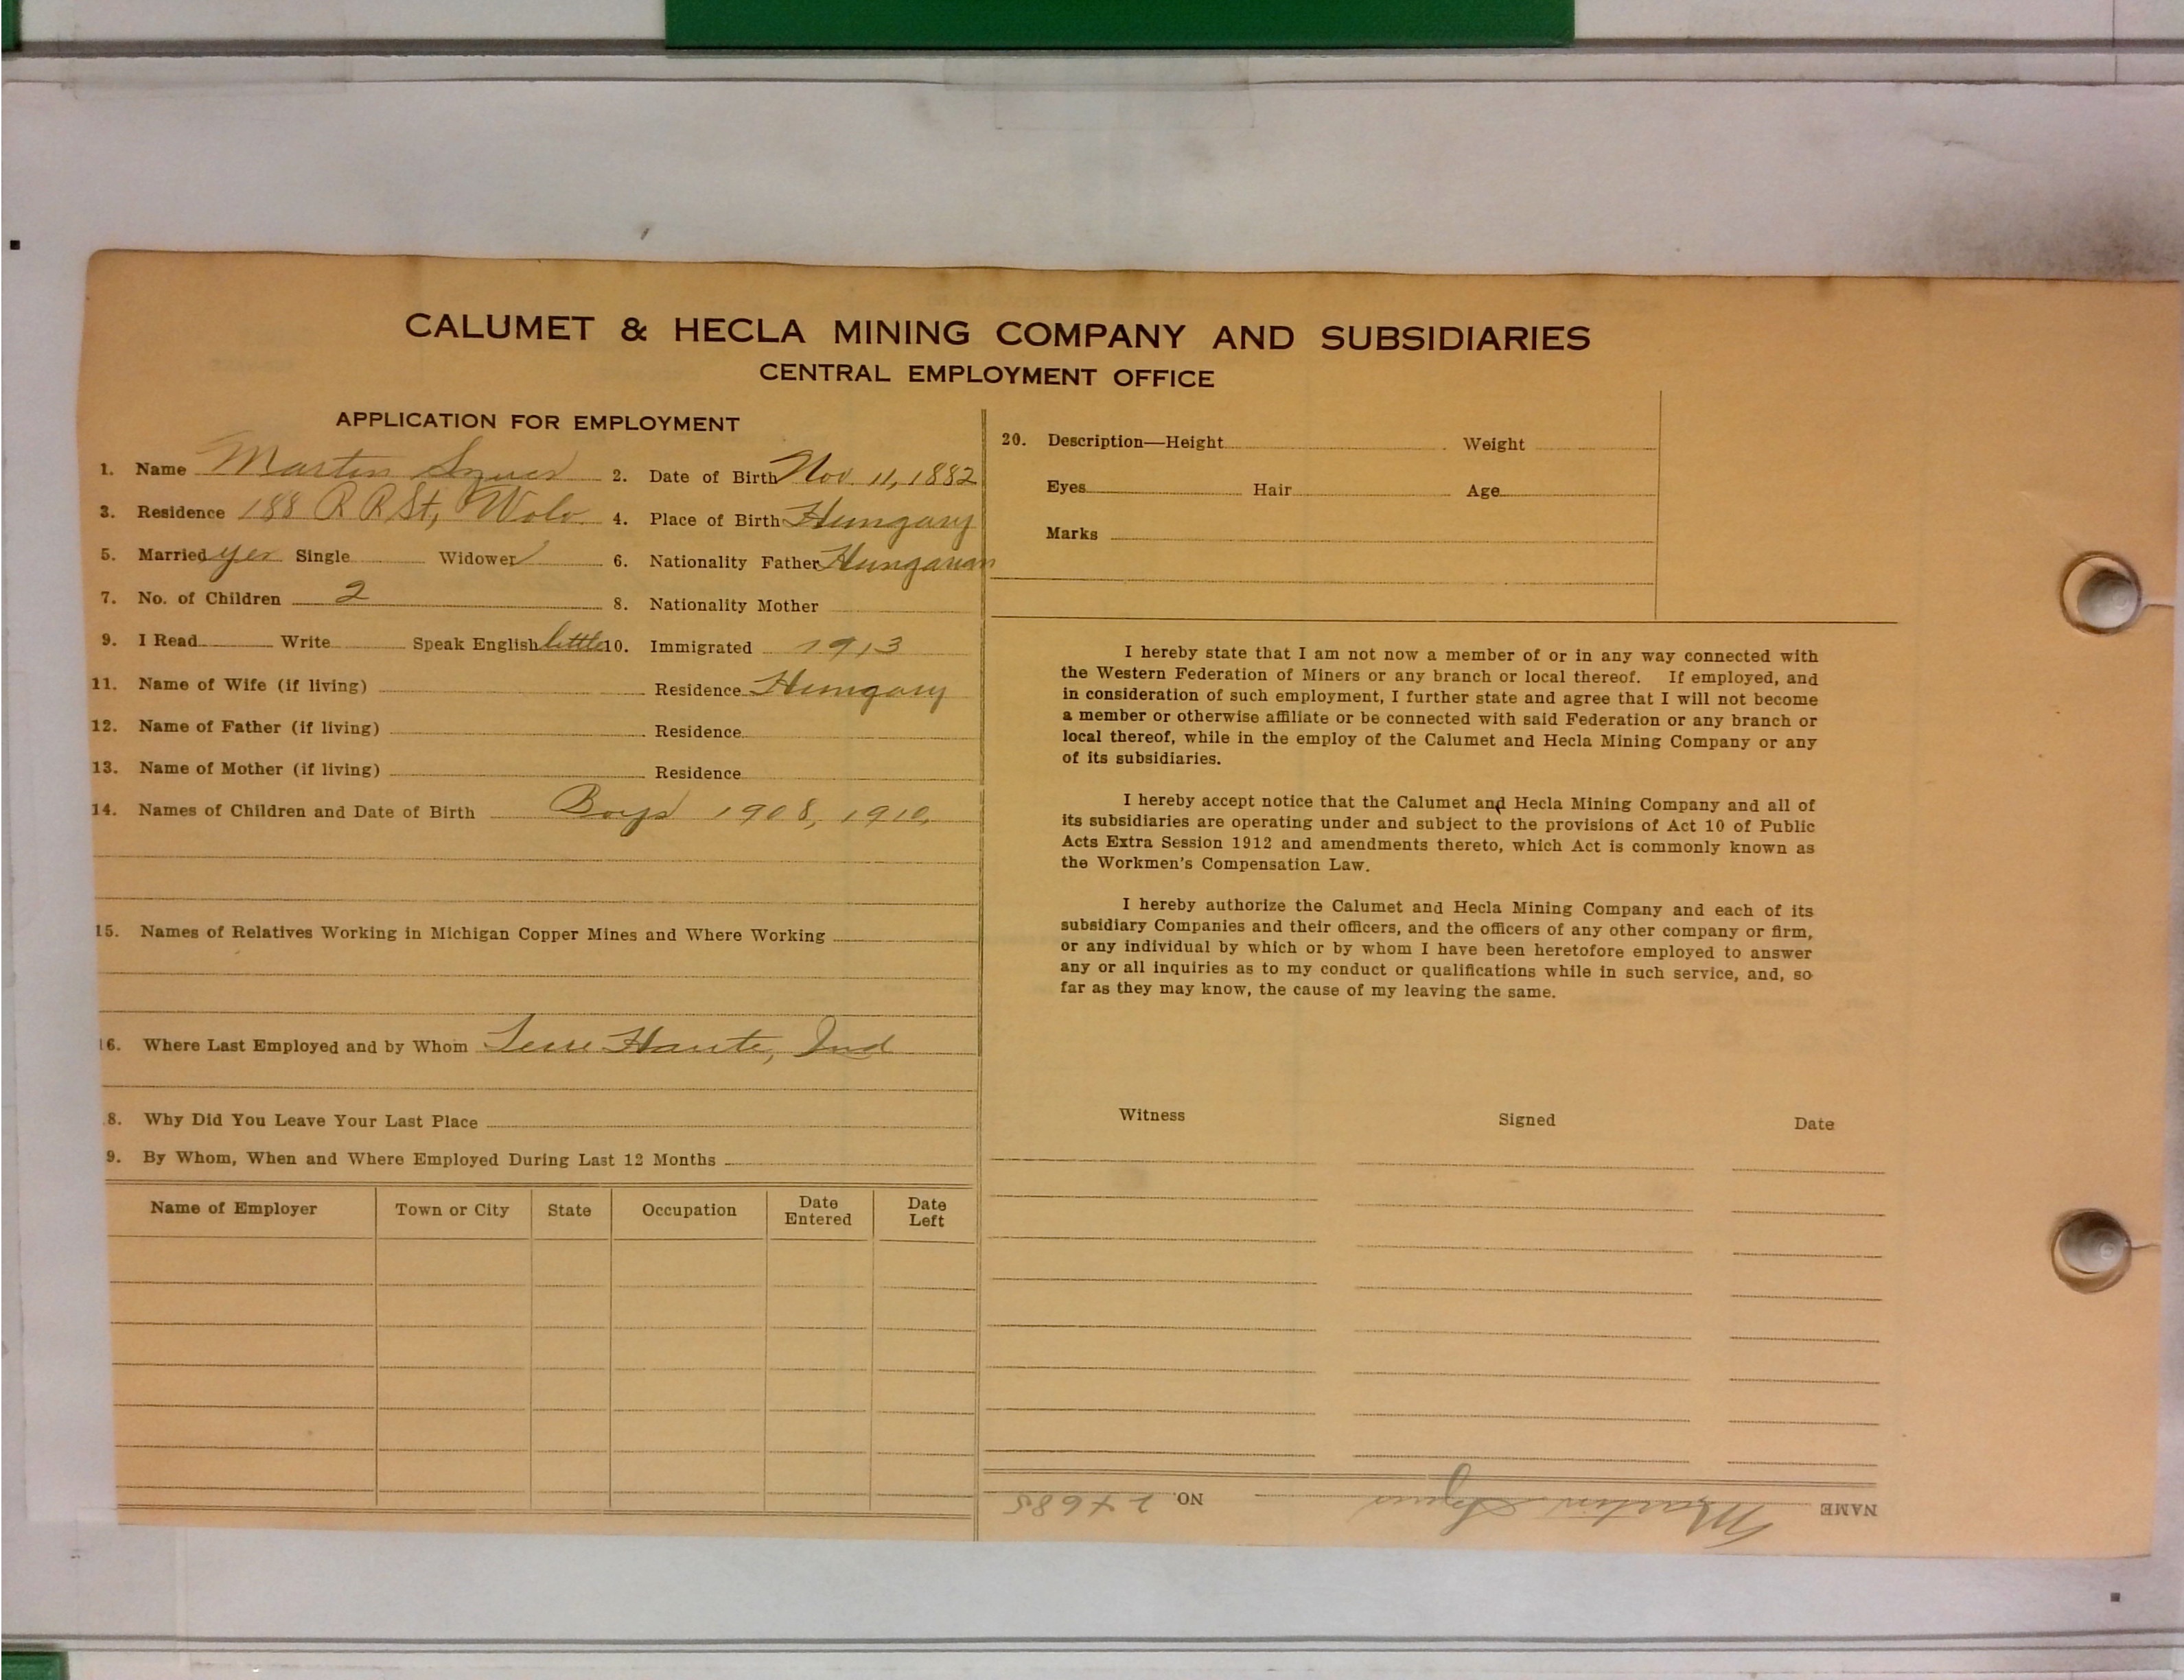 CALUMET & HECLA MINING COMPANY AND SUBSIDIARIES
CENTRAL EMPLOYMENT OFFICE
APPLICATION FOR EMPLOYMENT
1. Name Martin 2. Date of Birth Nov. 11, 1882
3. Residence 188 R R St, Wolv. 4. Place of Birth Hungary
5. Married yes Single Widower 6. Nationality Father Hungarian
7. No. of Children 2 8. Nationality Mother
9. I Read Write Speak English little 10. Immigrated 1913
11. Name of Wife (if living) Residence Hungary
12. Name of Father (if living) Residence
13. Name of Mother (if living) Residence
14. Names of Children and Date of Birth Boys 1908, 1910,
15. Names of Relatives Working in Michigan Copper Mines and Where Working
16. Where Last Employed and by Whom Terre Haute, Ind
8. Why Did You Leave Your Last Place
9. By Whom, When and Where Employed During Last 12 Months
Name of Employer Town or City State Occupation Date Entered Date Left
20. Description—Height Weight
Eyes Hair Age
Marks
I hereby state that I am not now a member of or in any way connected with
the Western Federation of Miners or any branch or local thereof. If employed, and
in consideration of such employment, I further state and agree that I will not become
a member or otherwise affiliate or be connected with said Federation or any branch or
local thereof, while in the employ of the Calumet and Hecla Mining Company or any
of its subsidiaries.
I hereby accept notice that the Calumet and Hecla Mining Company and all of
its subsidiaries are operating under and subject to the provisions of Act 10 of Public
Acts Extra Session 1912 and amendments thereto, which Act is commonly known as
the Workmen's Compensation Law.
I hereby authorize the Calumet and Hecla Mining Company and each of its
subsidiary Companies and their officers, and the officers of any other company or firm,
or any individual by which or by whom I have been heretofore employed to answer
any or all inquiries as to my conduct or qualifications while in such service, and, so
far as they may know, the cause of my leaving the same.
Witness Signed Date
NAME Martin NO. 24685